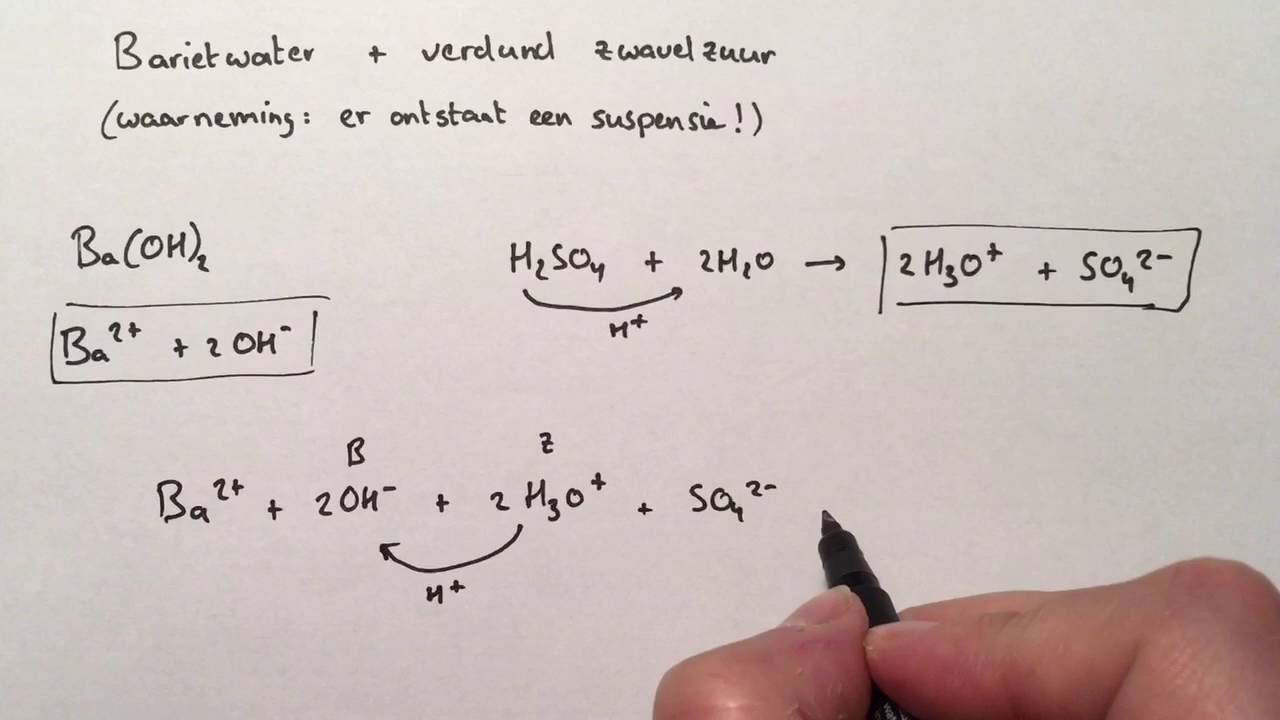 Barietwater + verdund zwavelzuur
(waarneming: er ontstaat een suspensie!)
Ba(OH)₂
H₂SO₄ + 2H₂O → 2H₃O⁺ + SO₄²⁻
H⁺
Ba²⁺ + 2OH⁻
B Z
Ba²⁺ + 2OH⁻ + 2H₃O⁺ + SO₄²⁻
H⁺